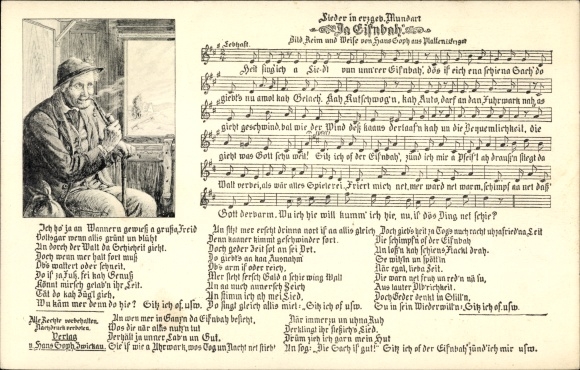 Lieder in erzgeb. Mundart
Da Eisnbah.
Bild, Reim und Weise von Hans Soph aus Platten
Lebhaft.
Heit sing ich a Lied'l vun unnrer Eisnbah, dös is eich ena schiena Sach' do
giebt's nu amol kah Gelach. Kah Kutschwog'n, kah Auto, darf an dan Fuhrwark nah, es
gieht geschwind, bal wie der Wind deß kaans derlaaf'n kah un die Bequemlichkeit, die
gieht was Gott scha weil! Sitz ich of der Eisnbah', zünd ich mir a Pfeif'l ah drauß'n fliegt da
Walt verbei, als wär alles Spielerei. Friert mich net, mer ward net warm, schimpf aa net daß
Gott derbarm. Wu ich hie will kumm' ich hie, nu, is dös Ding net schie?
Ich ho' ja an Wannern gewieß a grußa Freid
Vollsgar wenn alles grünt un blüht
Un dorch der Walt da Gehieheit zieht.
Doch wenn mer halt fort muß
Ob's wattert oder schneit,
Do is za Fuß, frei kah Genuß
Könnt mirsch gelab'n ihr Leit.
Tät do kah Zügl gieh,
Wu käm mer denn do hie? Sitz ich of. usw.
Un sitzt mer erscht drinna nort is aa alles gleich
Kenn kaaner nimmt geschwinder fört.
Doch geder Zeit sei an sei Ort.
Do giebt's aa kaa Ausnahm'
Ob's arm is oder reich,
Mer sieht fersch Gald a schie wing Walt
Un na nuch annersch Zeich
Un stimm ich ah mei Lied,
Do singt gleich alles miet: Sitz ich of usw.
Doch giebt's heit za Tog's nuch racht unzafried'na Leit
Die schimpf'n of der Eisnbah
Un loß'n kah schiens Flackl drah.
Se witl'n un spött'n
När egal, lieba Zeit.
Die warn net fruh un red'n nä su,
Aus lauter Olb'richkeit.
Doch Geder denkt in Still'n,
Su in sein Wiederwill'n: Sitz ich of usw.
Alle Rechte vorbehalten.
Nachdruck verboten.
Verlag
v. Hans Soph, Zwickau.
Un wen mer in Ganz'n da Eisnbah besieht,
Wos die när alles nutz'n tut
Derhält ja unner Lab'n un Gut.
Sie is wie a Uhrwark, wos Tog un Nacht net stieh!
När immer zu un uhna Ruh
Derklingt ihr siezichs Lied.
Drüm zieh ich garn mein Hut
Un sog: „Die Sach is gut!" Sitz ich of der Eisnbah', zünd' ich mir usw.